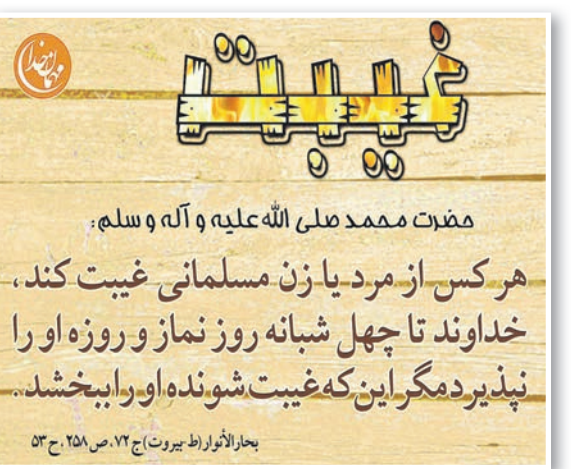 مهمان خدا
غیبت
حضرت محمد صلی الله علیه و آله و سلم:
هر کس از مرد یا زن مسلمانی غیبت کند،
خداوند تا چهل شبانه روز نماز و روزه او را
نپذیرد مگر این که غیبت شونده او را ببخشد.
بحارالأنوار (ط-بیروت) ج ۷۲، ص ۲۵۸، ح ۵۳